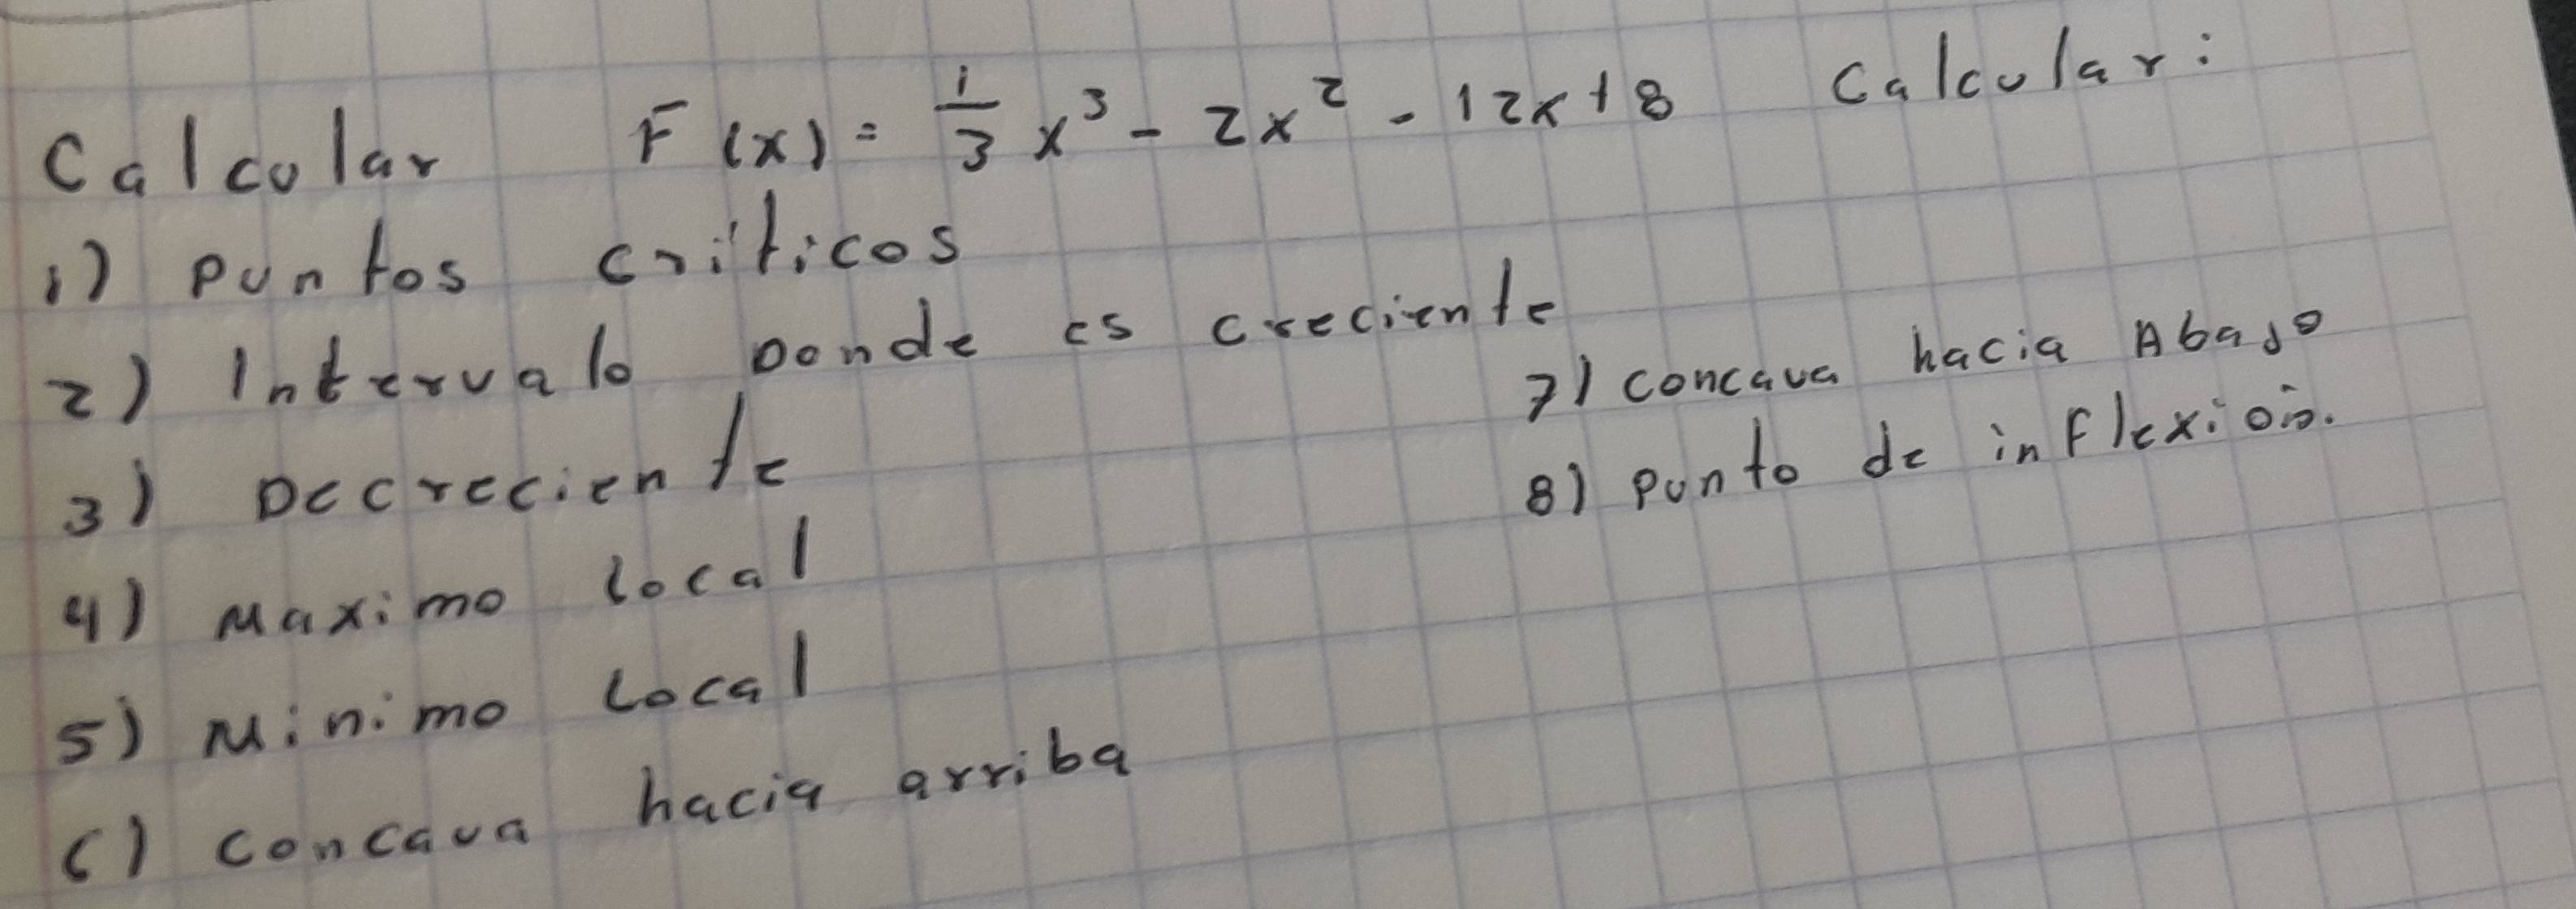 Calcular F(x) = 1/3 x³ - 2x² - 12x + 8 Calcular:
1) Puntos críticos
2) Intervalo Donde es creciente
3) Decreciente
4) Maximo local
5) Minimo Local
6) Concava hacia arriba
7) Concava hacia Abajo
8) Punto de inflexión.